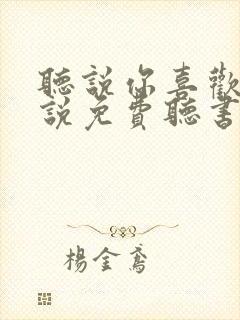 聽說你喜歡
說免費聽書
楊金鳶